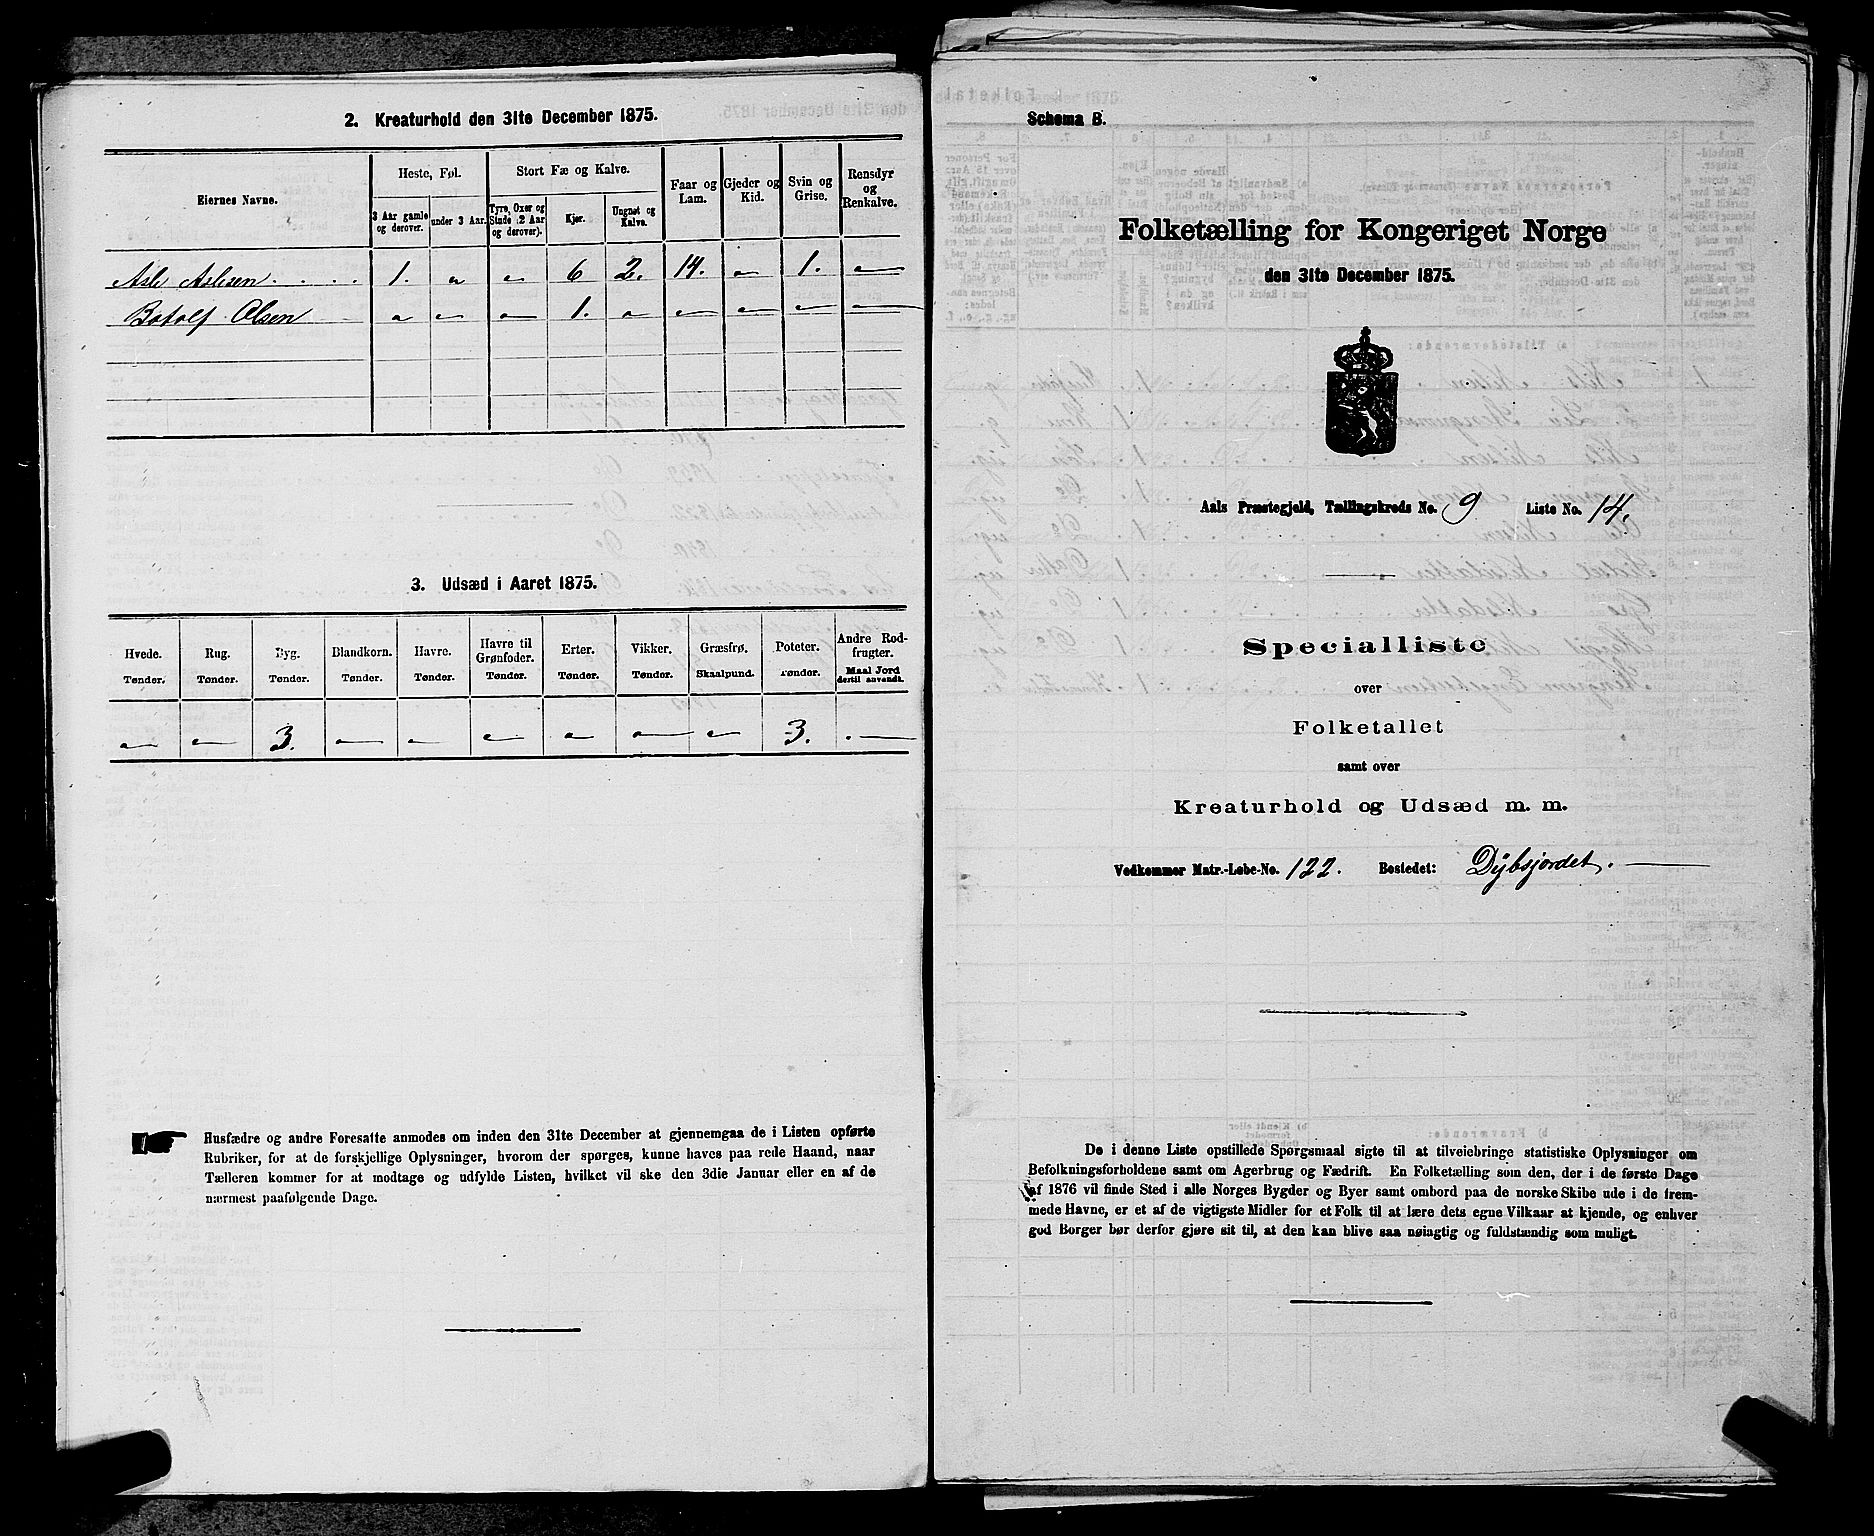 2. Kreaturhold den 31te December 1875.
Eiernes Navne.
Heste, Føl.
Stort Fæ og Kalve.
Faar og Lam.
Gjeder og Kid.
Svin og Grise.
Rensdyr og Renkalve.
3 Aar gamle og derover.
under 3 Aar.
Tyre, Oxer og Stude (2 Aar og derover).
Kjør.
Ungnøt og Kalve.
Asle Aslesen . . . . 1. " " 6 2. 14. " 1. "
Botolf Olsen " " " 1. " " " " "
3. Udsæd i Aaret 1875.
Hvede. Rug. Byg. Blandkorn. Havre. Havre til Grønfoder. Erter. Vikker. Græsfrø. Poteter. Andre Rodfrugter.
Tønder. Tønder. Tønder. Tønder. Tønder. Tønder. Tønder. Tønder. Skaalpund. Tønder. Maal Jord dertil anvendt.
" " 3. " " " " " " 3. . —
Husfædre og andre Foresatte anmodes om inden den 31te December at gjennemgaa de i Listen opførte
Rubriker, for at de forskjellige Oplysninger, hvorom der spørges, kunne haves paa rede Haand, naar
Tælleren kommer for at modtage og udfylde Listen, hvilket vil ske den 3die Januar eller en af de
nærmest paafølgende Dage.
Schema B.
Folketælling for Kongeriget Norge
den 31te December 1875.
Aals Præstegjeld, Tællingskreds No. 9 Liste No. 14.
Specialliste
over
Folketallet
samt over
Kreaturhold og Udsæd m. m.
Vedkommer Matr.-Løbe-No. 122. Bostedet: Dybsjordet.
De i denne Liste opstillede Spørgsmaal sigte til at tilveiebringe statistiske Oplysninger om
Befolkningsforholdene samt om Agerbrug og Fædrift. En Folketælling som den, der i de første Dage
af 1876 vil finde Sted i alle Norges Bygder og Byer samt ombord paa de norske Skibe ude i de frem-
mede Havne, er et af de vigtigste Midler for et Folk til at lære dets egne Vilkaar at kjende, og enhver
god Borger bør derfor gjøre sit til, at den kan blive saa nøiagtig og fuldstændig som muligt.